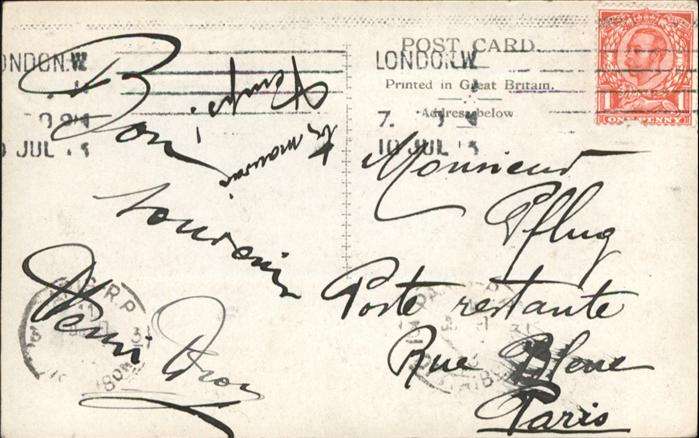 LONDON.W
10 JUL 13
Bon
souvenir
Henri
& mauvais
temps!
POST CARD.
Printed in Great Britain.
Address below
LONDON.W
7.
10 JUL 13
ONE PENNY
Monsieur
Pflug
Poste restante
Rue Bleue
Paris